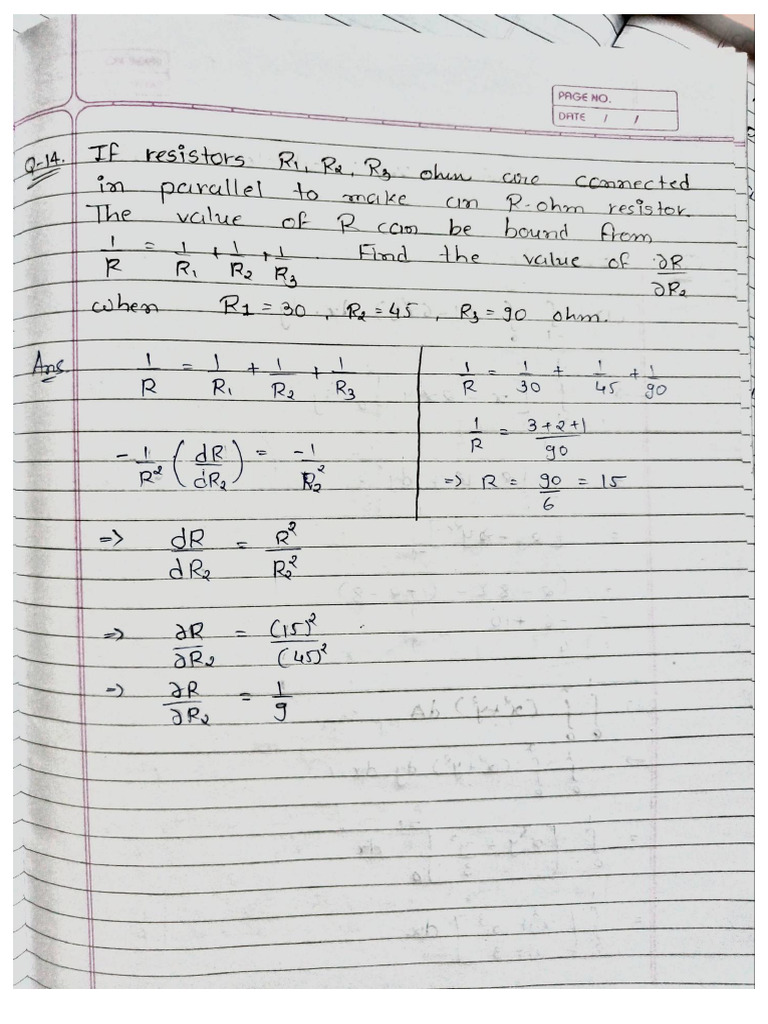 PAGE NO.
DATE / /
Q-14. If resistors R1, R2, R3 ohm are connected
in parallel to make an R-ohm resistor.
The value of R can be bound from
1/R = 1/R1 + 1/R2 + 1/R3. Find the value of ∂R/∂R2
when R1 = 30, R2 = 45, R3 = 90 ohm.
Ans 1/R = 1/R1 + 1/R2 + 1/R3
-1/R² (dR/dR2) = -1/R2²
1/R = 1/30 + 1/45 + 1/90
1/R = 3+2+1/90
=> R = 90/6 = 15
=> dR/dR2 = R²/R2²
=> ∂R/∂R2 = (15)²/(45)²
=> ∂R/∂R2 = 1/9